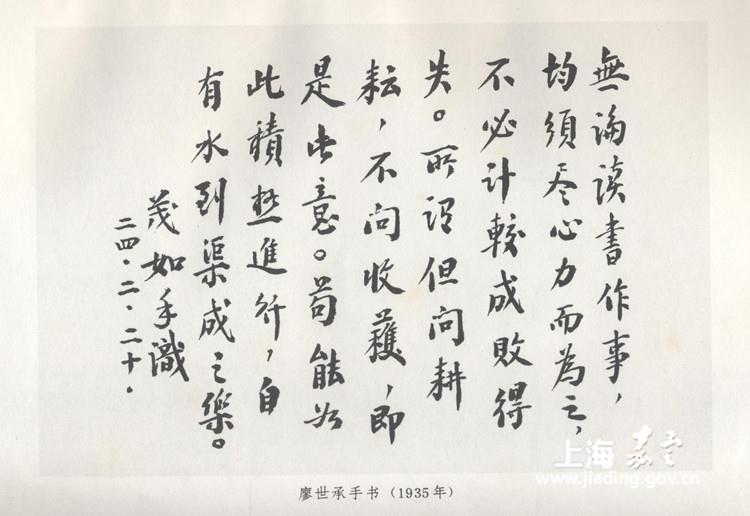 無論读書作事，
均須尽心力而為之，
不必計較成敗得
失。所謂但问耕
耘，不问收穫，即
是此意。苟能如
此積極進行，自
有水到渠成之樂。
茂如手識
二四·二·二十·
廖世承手书（1935年）
上海嘉定
www.jiading.gov.cn